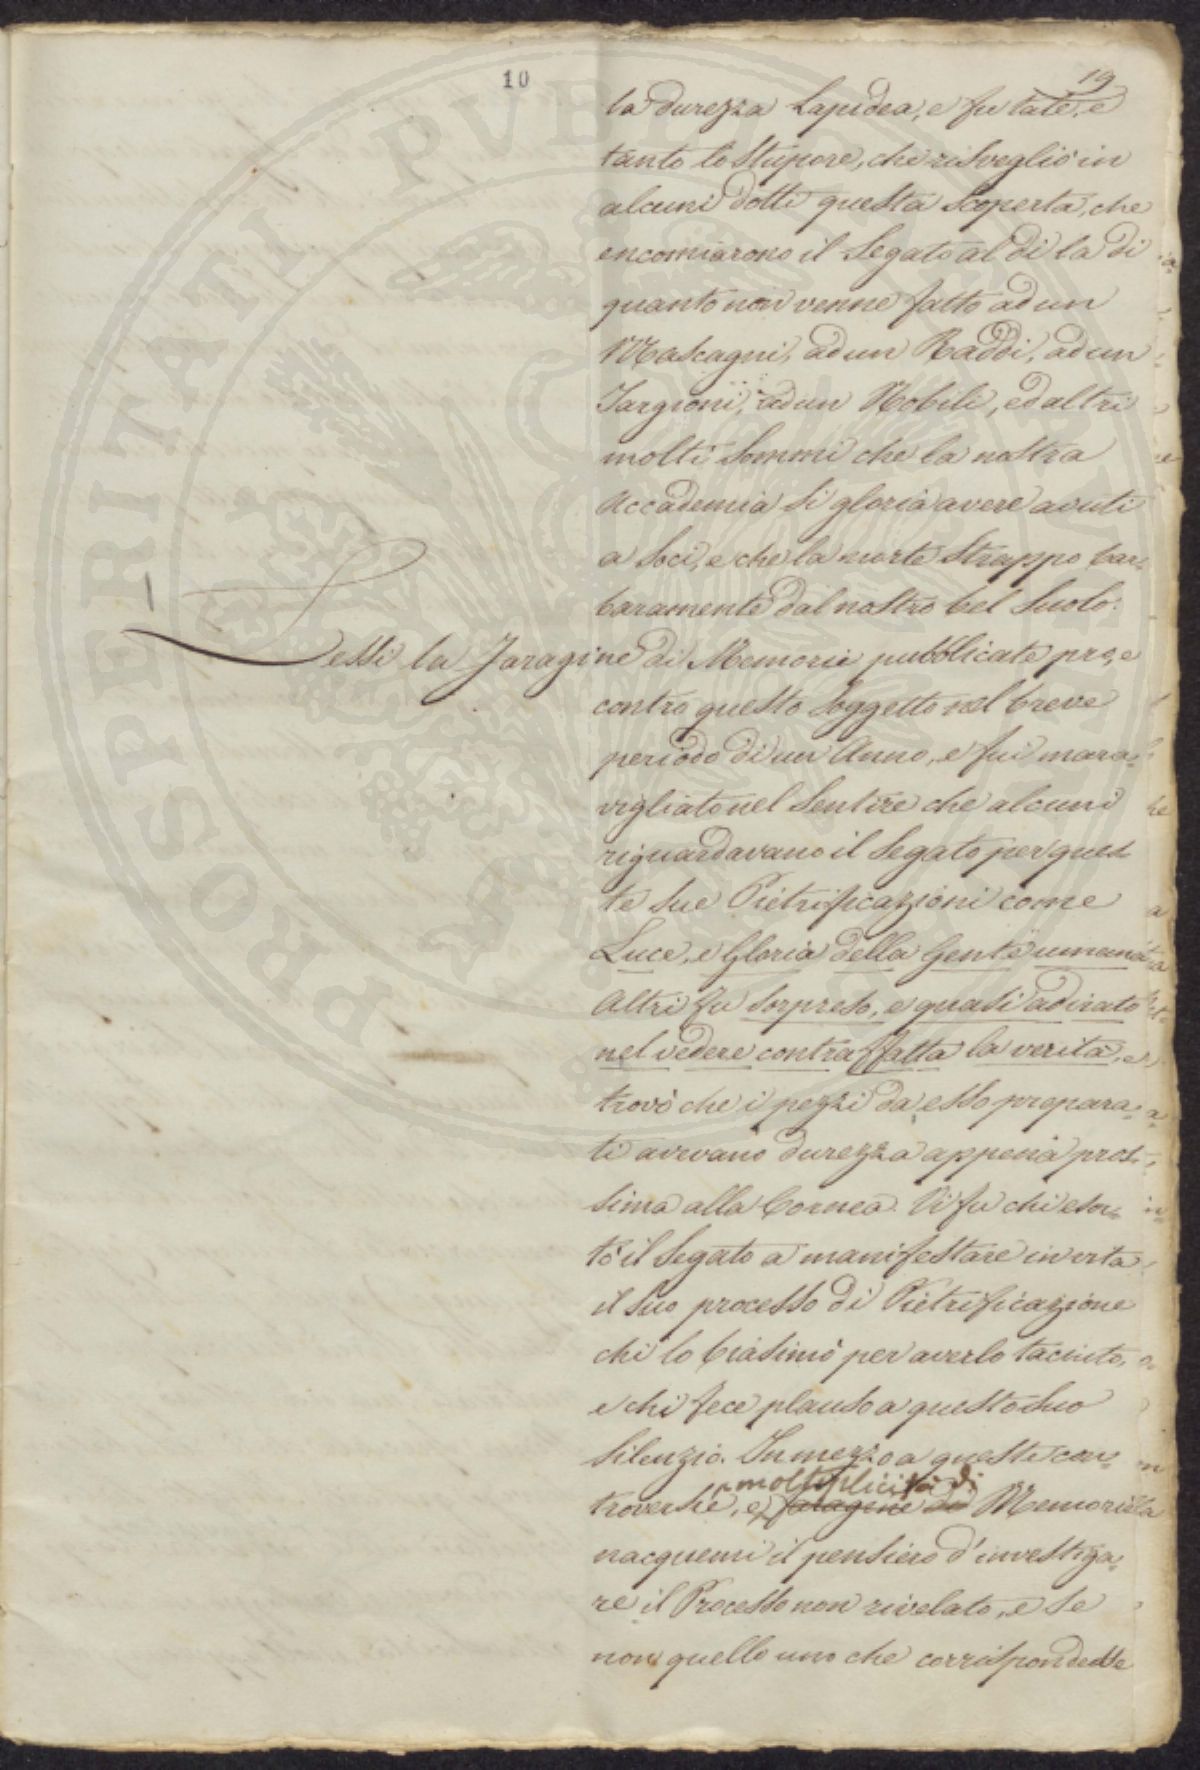 10
19
la durezza Lapidea, e fu tale, e
tanto lo Stupore, che risvegliò in
alcuni dotti questa Scoperta, che
encomiarono il Segato al di la di
quanto non venne fatto ad un
Mascagni, ad un Raddi, ad un
Targioni, ad un Nobili, ed altri
molti Sommi che la nostra
Accademia Si gloria avere avuti
a Soci, e che la morte Strappo bar=
baramente dal nostro bel Suolo.
Lessi la Faragine di Memorie pubblicate pro, e
contro questo Soggetto nel breve
periodo di un Anno, e fui mara=
vigliato nel Sentire che alcuni
riguardavano il Segato per ques=
te Sue Pietrificazioni come
Luce, e Gloria della Gente umana
Altri fu sorpreso, e quasi adirato
nel vedere contraffatta la verità, e
trovò che i pezzi da esso prepara=
ti avevano durezza appena pros=
sima alla Cornea. Vi fu chi esor=
tò il Segato a manifestare in vita
il Suo processo di Pietrificazione
chi lo biasimò per averlo taciuto,
e chi fece plauso a questo Suo
Silenzio. In mezzo a queste con=
moltiplicità di
troversie, e faragine di Memorie
nacquemi il pensiero d'investiga=
re il Processo non rivelato, e Se
non quello uno che corrispondesse
PROSPERITATI PVBLICAE